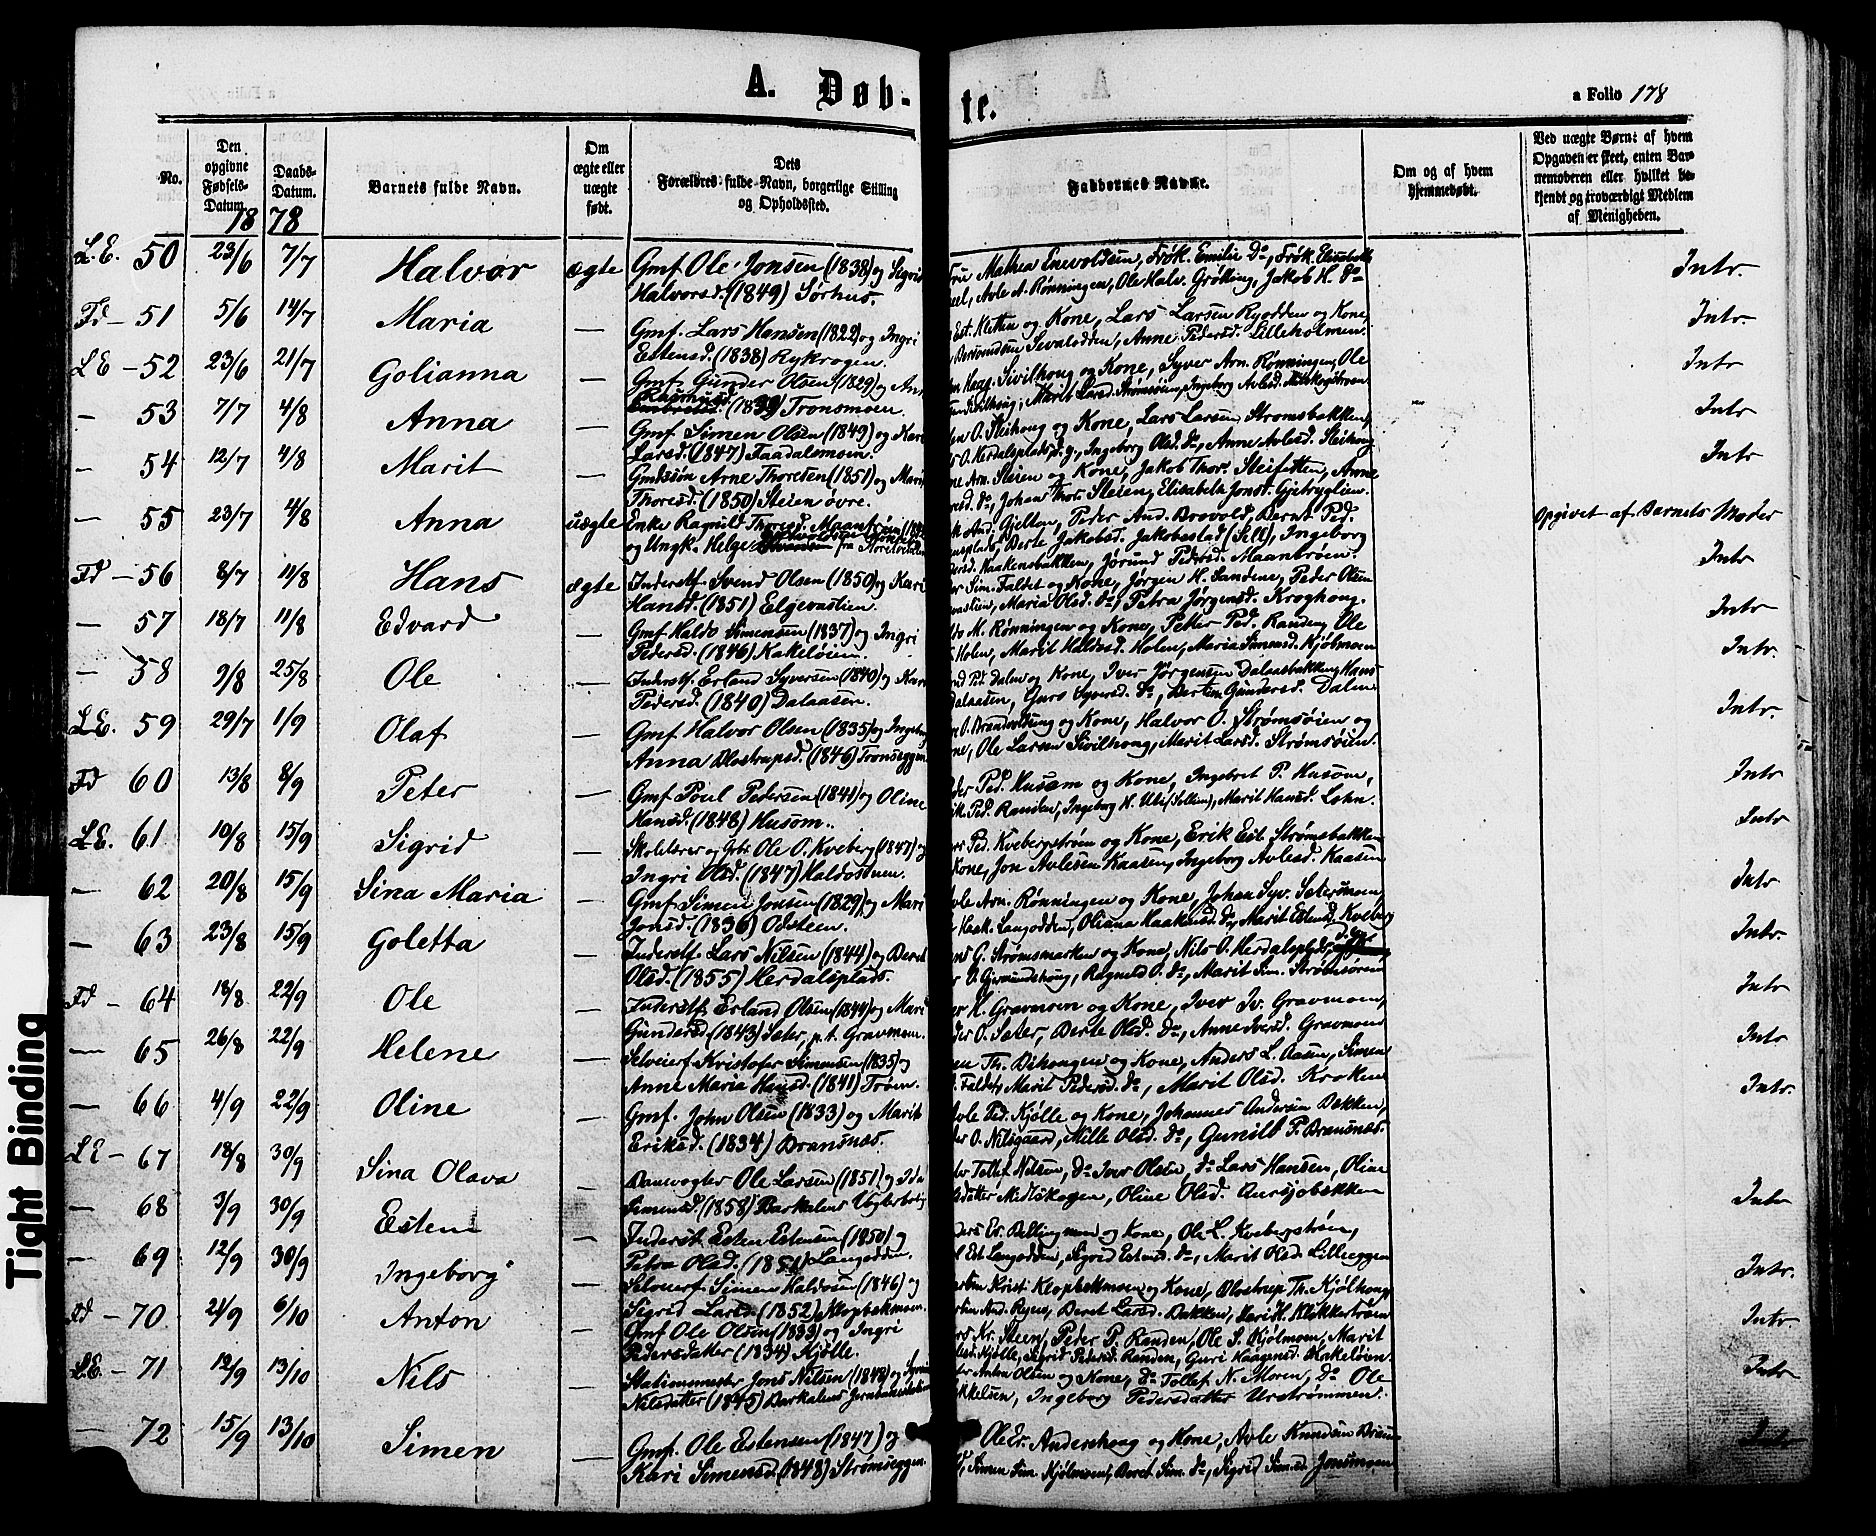 A. Døb-
te.
a Folio 178
No.
Den opgivne Fødsels-Datum.
Daabs-Datum.
Barnets fulde Navn.
Om ægte eller uægte født.
Dets
Forældres fulde Navn, borgerlige Stilling
og Opholdssted.
Faddernes Navne.
Om og af hvem
hjemmedøbt.
Ved uægte Børn: af hvem
Opgaven er skeet, enten Bar-
nemoderen eller hvilket be-
kjendt og troværdigt Medlem
af Menigheden.
1878
L.E. 50 23/6 7/7 Halvor ægte Gmf. Ole Jonsen (1838) og Sigrid
Halvorsd. (1849) Sørhus.
Fru Mathea Enevoldsen, Frøk. Emilie Do, Frøk. Elisabeth
Avle A. Rønningen, Ole Halv. Grøtting, Jakob H. Do
Intr.
Fd - 51 5/6 14/7 Maria — Gmf. Lars Hansen (1822) og Ingri
Estensd. (1838) Rykrogen.
Est. Kletten og Kone, Lars Larsen Ryodden og Kone
Anne Pedersd. Lilleholmen.
Intr.
L E - 52 23/6 21/7 Golianna — Gmf. Gunder Olsen (1829) og
Rasmusd. (1839) Tronsmoen.
Sivilhoug og Kone, Syver Arn. Rønningen, Ole
Marit Larsd. Strømsøien, Ingeborg Avlesd.
Intr
— 53 7/7 4/8 Anna — Gmf. Simen Olsen (1849) og Kari
Larsd. (1847) Faadalsmoen.
O. Steihoug og Kone, Lars Larsen Stromsbakken,
O. Herdalsplads, Ingeborg Olsd. Do, Anne Avlesd. Steihoug
Intr
— 54 12/7 4/8 Marit — Gmdssøn Arne Thoresen (1851) og Marit
Thoresd. (1850) Steien øvre.
Arn. Steien og Kone, Jakob Thor. Steifetten, Anne
Do, Johan Thor. Steien, Elisabeth Jonsd. Gjetryglien.
Intr
— 55 23/7 4/8 Anna uægte Enke Ragnild Thoresd. Maantrøen
og Ungk. Helge
And. Gjelten, Peder And. Brovold, Bernt Ped.
Berte Jakobsd. Jakobsstad (Sell), Ingeborg
Haakensbakken, Jørund Pedersd. Maantrøen.
Opgivet af Barnets Moder
Fd - 56 8/7 11/8 Hans ægte Inderstf. Svend Olsen (1850) og Kari
Hansd. (1851) Elgevastien.
Sim. Faldet og Kone, Jørgen H. Sandene, Peder Olsen
Maria Olsd. Do, Petra Jørgensd. Kroghoug.
Intr
— 57 18/7 11/8 Edvard — Gmf. Haldo Simensen (1837) og Ingri
Pedersd. (1846) Kakeløien.
M. Rønningen og Kone, Petter Ped. Randen, Ole
Holen, Marit Haldosd. Holen, Maria Simensd. Kjølmoen
Intr
— 58 9/8 25/8 Ole — Inderstf. Erland Syversen (1840) og Kari
Pedersd. (1840) Dalaasen.
Ped. Dalen og Kone, Iver Jørgensen Dalaasbakken, Hans
Dalaasen, Guro Syversd. Do, Berten Gundersd. Dalen
Intr.
L.E. 59 29/7 1/9 Olaf — Gmf. Halvor Olsen (1835) og Ingeborg
Anna Olostrupsd. (1846) Tronseggen
O. Brandvoldseng og Kone, Halvor O. Strømsøien og
Ole Larsen Sivilhoug, Marit Larsd. Strømsøien.
Intr.
Fd 60 13/8 8/9 Peter — Gmf. Poul Pedersen (1841) og Oline
Hansd. (1848) Husom.
Ped. Husom og Kone, Ingebret P. Husom,
Ped. Randen, Ingeborg H. Marit Hansd. Lohn.
Intr
L.E. 61 10/8 15/9 Sigrid — Skolelærer og Gbr. Ole O. Kveberg (1847) og
Ingri Olsd. (1847) Haldostuen.
Ped. Kvebergstrøm og Kone, Erik Est. Strømsbakken
Kone, Jon Avlesen Kaasen, Ingeborg Avlesd. Kaasen
Intr
— 62 20/8 15/9 Sina Maria — Gmf. Simen Jonsen (1829) og Mari
Jonsd. (1836) Odsteen.
Arn. Rønningen og Kone, Johan Syv. Sætersmoen,
Haak. Langodden, Oliana Haakensd. Do, Marit Estensd. Kveberg
Intr
— 63 23/8 15/9 Goletta — Inderstf. Lars Nilsen (1844) og Beret
Olsd. (1855) Herdalsplads.
G. Strømsmarken og Kone, Nils O. Herdalsplads,
O. Gjermundshoug, Ragnild O. Do, Marit Sim. Strømsøien
Intr.
Fd - 64 18/8 22/9 Ole — Inderstf. Erland Olsen (1844) og Mari
Gundersd. (1843) Sæter, p.t. Gravmoen.
H. Gravmoen og Kone, Iver Iv. Gravmoen,
O. Sæter, Berte Olsd. Do, Anne Iversd. Gravmoen
Intr
— 65 26/8 22/9 Helene — Selveierf. Kristofer Simensen (1835) og
Anne Maria Hansd. (1841) Trøen.
Th. Bihaugen og Kone, Anders L. Aasen, Simen
Faldet, Marit Pedersd. Do, Marit Olsd. Kroken
Intr
— 66 4/9 22/9 Oline — Gmf. John Olsen (1833) og Marit
Eriksd. (1834) Bransnæs.
Ped. Kjølle og Kone, Johannes Andersen Bekken,
O. Nilsgaard, Mille Olsd. Do, Gunild P. Bransnæs.
Intr.
L E - 67 18/8 30/9 Sina Olava — Banevogter Ole Larsen (1851) og Ida
Simensd. (1858) Barkalens Vogterbolig
Tollef Nilsen, Do Iver Olsen, Do Lars Hansen, Oline
Midtskogen, Oline Olsd. Aursjobækken
— 68 3/9 30/9 Esten — Inderstf. Esten Estensen (1850) og
Petra Olsd. (1851) Langodden.
Er. Bellingmoen og Kone, Ole L. Kvebergstrøm,
Est. Langodden, Sigrid Estensd. Do, Marit Olsd. Lilleeggen
Intr
— 69 12/9 30/9 Ingeborg — Selveierf. Simen Haldosen (1846) og
Sigrid Larsd. (1852) Klopbekmoen.
Krist. Klopbekmoen og Kone, Olostrup Th. Kjølhoug,
And. Ryen, Beret Larsd. Bakken, Mari H. Klokkertrøen
Intr.
Fd - 70 21/9 6/10 Anton — Gmf. Ole Olsen (1833) og Ingri
Pedersdatter (1834) Kjølle.
Kr. Steen, Peder P. Randen, Ole S. Kjølmoen, Marit
Kjølle, Sigrid Pedersd. Randen, Guri Haagensd. Kakeløien.
Intr
L.E - 71 12/9 13/10 Nils — Stationsmester Jens Nilsen (1848) og
Nilsdatter (1845) Barkalens Jernbanestation
Anton Olsen og Kone, Do Tollef N. Moren, Do Ole
Ingeborg Pedersdatter Urstrømmen.
Intr
— 72 15/9 13/10 Simen — Gmf. Ole Estensen (1847) og
Kari Simensd. (1848) Strømseggen.
Ole Er. Andershoug og Kone, Avle Knudsen
Simen Sim. Kjølmoen, Beret Sim. Do, Sigrid Simensd. Jonsmoen
Intr
Tight Binding